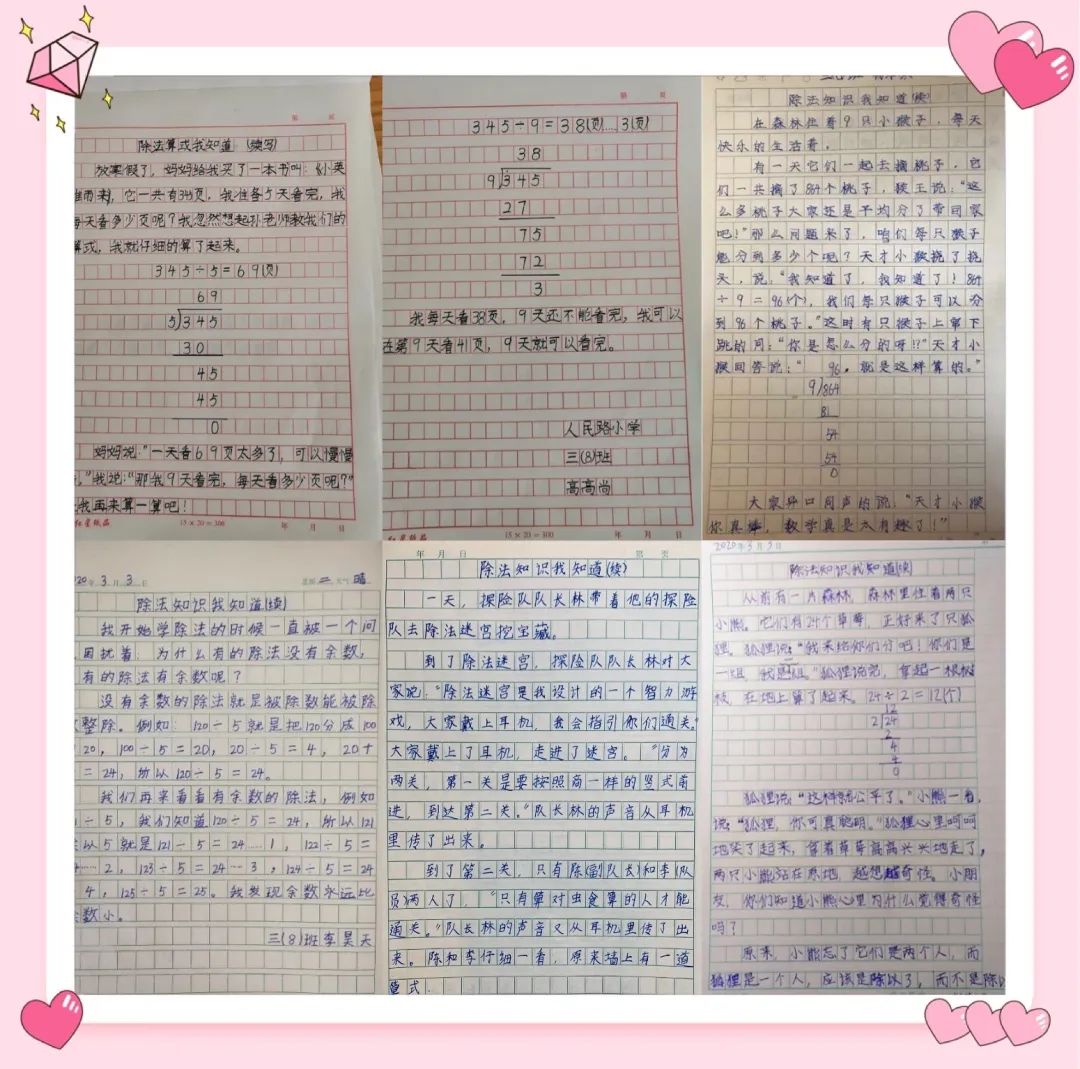 第 页
除法算式我知道 (续写)
放寒假了，妈妈给我买了一本书叫:《小英
雄雨来》，它一共有345页，我准备5天看完，我
每天看多少页呢？我忽然想起孙老师教我们的
算式，我就仔细的算了起来。
345÷5=69(页)
69
5)345
30
45
45
0
妈妈说:"一天看69页太多了，可以慢慢
"我说:"那我9天看完，每天看多少页呢？"
我再来算一算吧！
红星纸品 15×20=300 年 月 日
第 页
345÷9=38(页)...3(页)
38
9)345
27
75
72
3
我每天看38页，9天还不能看完，我可以
在第9天看41页，9天就可以看完。
人民路小学
三(8)班
高高尚
红星纸品 15×20=300 年 月 日
除法知识我知道(续)
在森林住着9只小猴子，每天
快乐的生活着，
有一天它们一起去摘桃子，它
们一共摘了864个桃子，猴王说:"这
么多桃子大家还是平均分了带回家
吧！"那么问题来了，咱们每只猴子
能分到多少个呢？天才小猴挠了挠
头，说:"我知道了，我知道了！864
÷9=96(个)，我们每只猴子可以分
到96个桃子。"这时有只猴子上窜下
跳的问:"你是怎么分的呀!?"天才小
猴回答说:" 96，就是这样算的。"
9)864
81
54
54
0
大家异口同声的说:"天才小猴
你真棒，数学真是太有趣了！"
2020年3月3日 星期二 天气 晴
除法知识我知道(续)
我开始学除法的时候一直被一个问
困扰着:为什么有的除法没有余数，
有的除法有余数呢？
没有余数的除法就是被除数能被除
整除。例如:120÷5就是把120分成100
20，100÷5=20，20÷5=4，20+
=24，所以120÷5=24。
我们再来看看有余数的除法，例如
1÷5，我们知道120÷5=24，所以121
以5就是121÷5=24……1，122÷5=
……2，123÷5=24…3，124÷5=24
4，125÷5=25。我发现余数永远比
数小。
三(8)班李昊天
年 月 日 第 页
除法知识我知道(续)
一天，探险队队长林带着他的探险
队去除法迷宫挖宝藏。
到了除法迷宫，探险队队长林对大
家说:"除法迷宫是我设计的一个智力游
戏，大家戴上耳机，我会指引你们通关。"
大家戴上了耳机，走进了迷宫。"分为
两关，第一关是要按照商一样的竖式前
进，到达第二关。"队长林的声音从耳机
里传了出来。
到了第二关，只有陈(副队长)和李(队
员)两人了，"只有算对虫食算的人才能
通关。"队长林的声音又从耳机里传了出
来。陈和李仔细一看，原来墙上有一道
竖式.
2020年3月3日
除法知识我知道(续)
从前有一片森林，森林里住着两只
小熊。它们有24个草莓，正好来了只狐
狸。狐狸说:"我来给你们分吧！你们是
一组，我是一组。"狐狸说完，拿起一根树
枝，在地上算了起来。24÷2=12(个)
12
2)24
2
4
4
0
狐狸说:"这样就公平了。"小熊一看，
说:"狐狸，你可真聪明。"狐狸心里呵呵
地笑了起来，拿着草莓高高兴兴地走了，
两只小熊站在原地，越想越奇怪。小朋
友，你们知道小熊心里为什么觉得奇怪
吗？
原来，小熊忘了它们是两个人，而
狐狸是一个人，应该是除以3，而不是除以